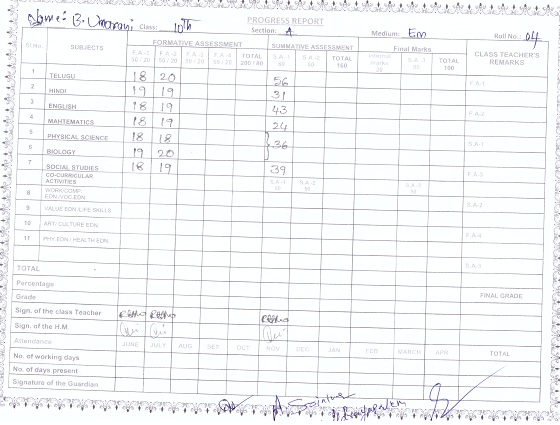 PROGRESS REPORT
Name: B. Umarani Class: 10th Section: A Medium: Em Roll No.: 04
Sl.No. SUBJECTS FORMATIVE ASSESSMENT SUMMATIVE ASSESSMENT Final Marks CLASS TEACHER'S REMARKS
F.A.-1 F.A.-2 F.A.-3 F.A.-4 TOTAL S.A.-1 S.A.-2 TOTAL Internal marks TOTAL
1 TELUGU 18 20 56 F.A-1
2 HINDI 19 19 31
3 ENGLISH 18 19 43 F.A-2
4 MATHEMATICS 18 19 24
5 PHYSICAL SCIENCE 18 18 36 S.A-1
6 BIOLOGY 19 20
7 SOCIAL STUDIES 18 19 39 F.A-3
CO-CURRICULAR ACTIVITIES S.A.-1 S.A.-2 S.A.-1
8 WORK/COMP. EDN./VOC.EDN S.A-2
9 VALUE EDN./LIFE SKILLS
10 ART/ CULTURE.EDN F.A-4
11 PHY.EDN / HEALTH.EDN
S.A-3
TOTAL
Percentage
Grade FINAL GRADE
Sign. of the class Teacher
Sign. of the H.M.
Attendance JUNE JULY AUG SEP OCT NOV DEC JAN FEB MARCH APR TOTAL
No. of working days
No. of days present
Signature of the Guardian